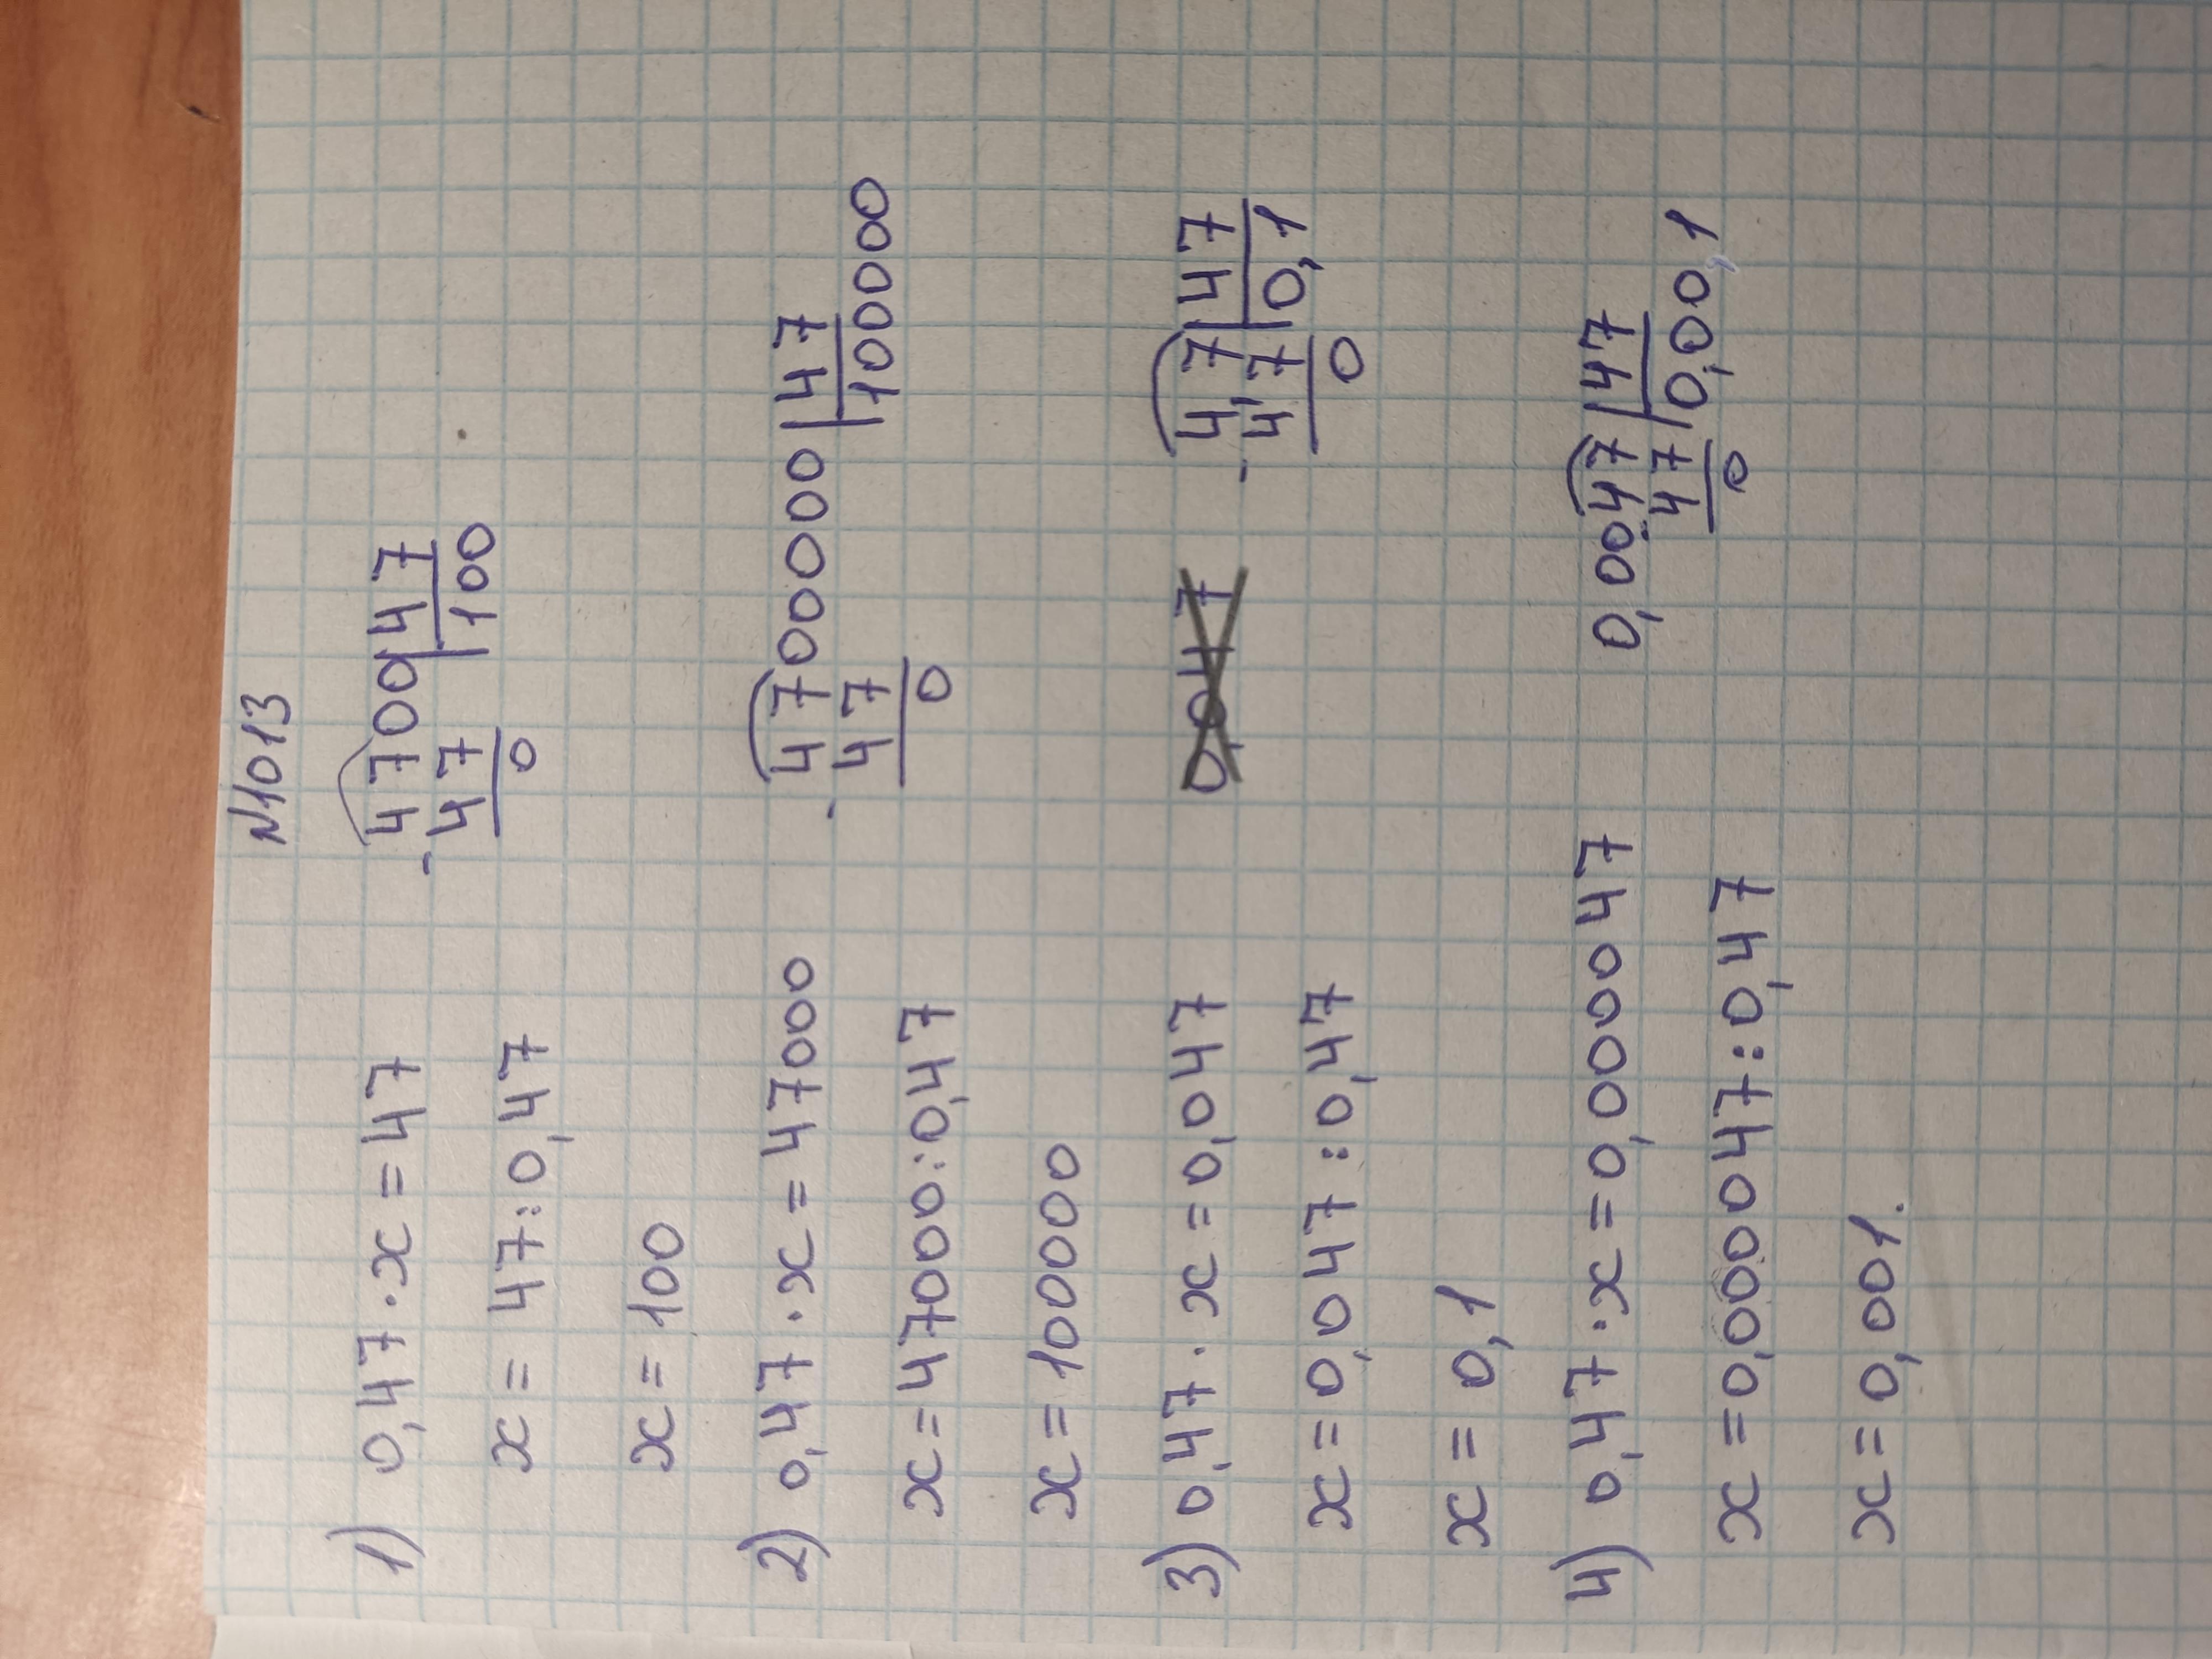 №1013
1) 0,47·x=47 4700|47
- 47 100
x=47:0,47 0
x=100
2) 0,47·x=47000 4700000|47
- 47 100000
x=47000:0,47 0
x=100000
3) 0,47·x=0,047 0,047 4,7|47
- 47 0,1
x=0,047:0,47 0
x=0,1
4) 0,47·x=0,000047 0,0047|47
47 0,001
x=0,000047:0,47 0
x=0,001.